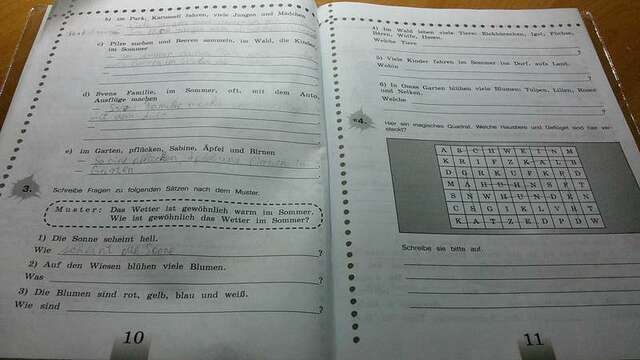 b) im Park, Karussell fahren, viele Jungen und Mädchen
c) Pilze suchen und Beeren sammeln, im Wald, die Kinder,
im Sommer
d) Svens Familie, im Sommer, oft, mit dem Auto,
Ausflüge machen
e) im Garten, pflücken, Sabine, Äpfel und Birnen
Sabine pflücken Äpfel und Birnen in
Garten
3. Schreibe Fragen zu folgenden Sätzen nach dem Muster.
Muster: Das Wetter ist gewöhnlich warm im Sommer.
Wie ist gewöhnlich das Wetter im Sommer?
1) Die Sonne scheint hell.
Wie scheint die Sonne ?
2) Auf den Wiesen blühen viele Blumen.
Was ?
3) Die Blumen sind rot, gelb, blau und weiß.
Wie sind ?
10
4) Im Wald leben viele Tiere: Eichhörnchen, Igel, Füchse,
Bären, Wölfe, Hasen.
Welche Tiere ?
5) Viele Kinder fahren im Sommer ins Dorf, aufs Land.
Wohin ?
6) In Omas Garten blühen viele Blumen: Tulpen, Lilien, Rosen
und Nelken.
Welche ?
*4. Hier ein magisches Quadrat. Welche Haustiere und Geflügel sind hier ver-
steckt?
A S C H W E I N M
K R I F Z K A L B
D Q R K U F K F D
M A H U H N S F T
S N W H U N D E N
C S G T K L V I T
K A T Z E D P D W
Schreibe sie bitte auf.
11